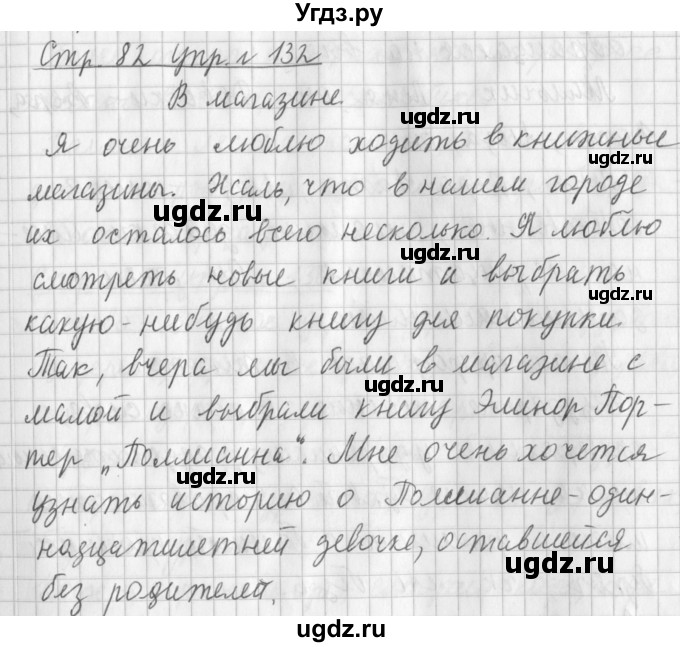 Угдз.ру
Стр. 82 упр. № 132
В магазине.
Я очень люблю ходить в книжные
ugdz.ru
ugdz.ru
магазины. Жаль, что в нашем городе
ugdz.ru
их осталось всего несколько. Я люблю
ugdz.ru
смотреть новые книги и выбрать
ugdz.ru
какую-нибудь книгу для покупки.
Так, вчера мы были в магазине с
ugdz.ru
мамой и выбрали книгу Элинор Пор-
тер „Поллианна“. Мне очень хочется
ugdz.ru
узнать историю о Поллианне-один-
надцатилетней девочке, оставшейся
ugdz.ru
без родителей.
ugdz.ru
ugdz.ru